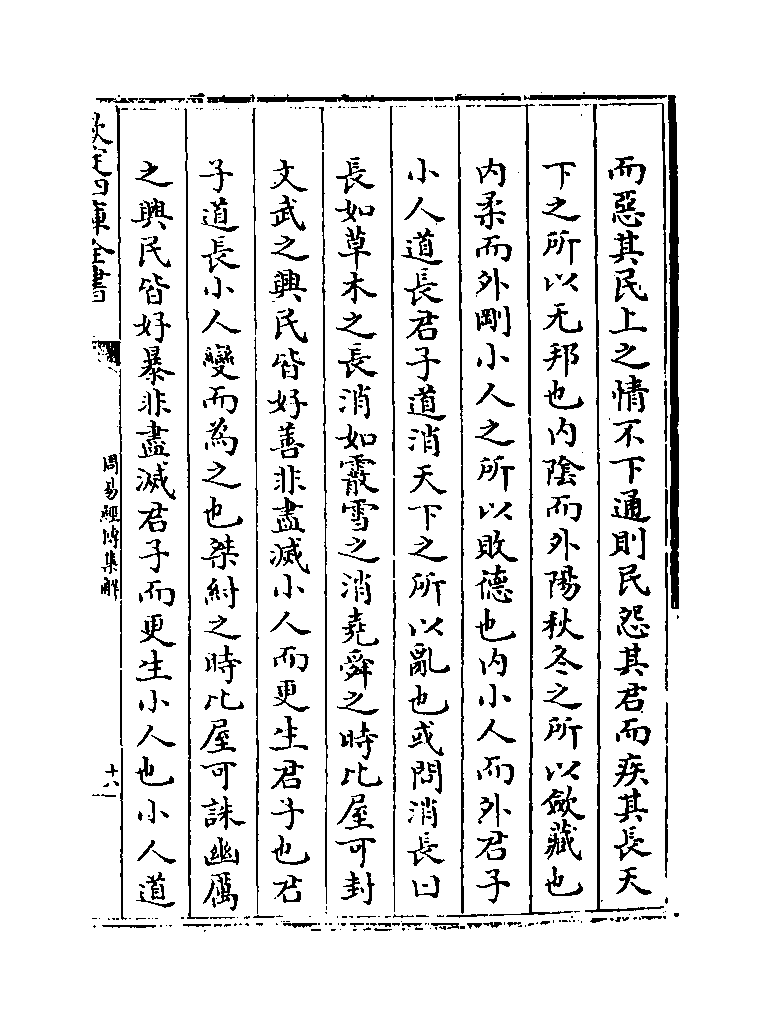 而惡其民上之情不下通則民怨其君而疾其長天
下之所以无邦也内陰而外陽秋冬之所以斂藏也
内柔而外剛小人之所以敗德也内小人而外君子
小人道長君子道消天下之所以亂也或問消長曰
長如草木之長消如霰雪之消堯舜之時比屋可封
文武之興民皆好善非盡滅小人而更生君子也君
子道長小人變而為之也桀紂之時比屋可誅幽厲
之興民皆好暴非盡滅君子而更生小人也小人道
欽定四庫全書
周易經傳集解
十八